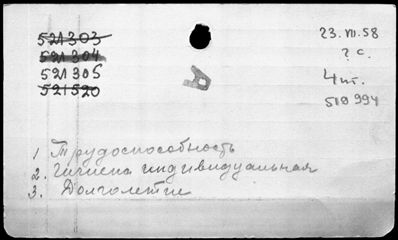 521303
521304
521305
521520
23.VII.58
? с.
4 шт.
519994
Я
1 Трудоспособность
2. Гигиена индивидуальная
3. Долголетие